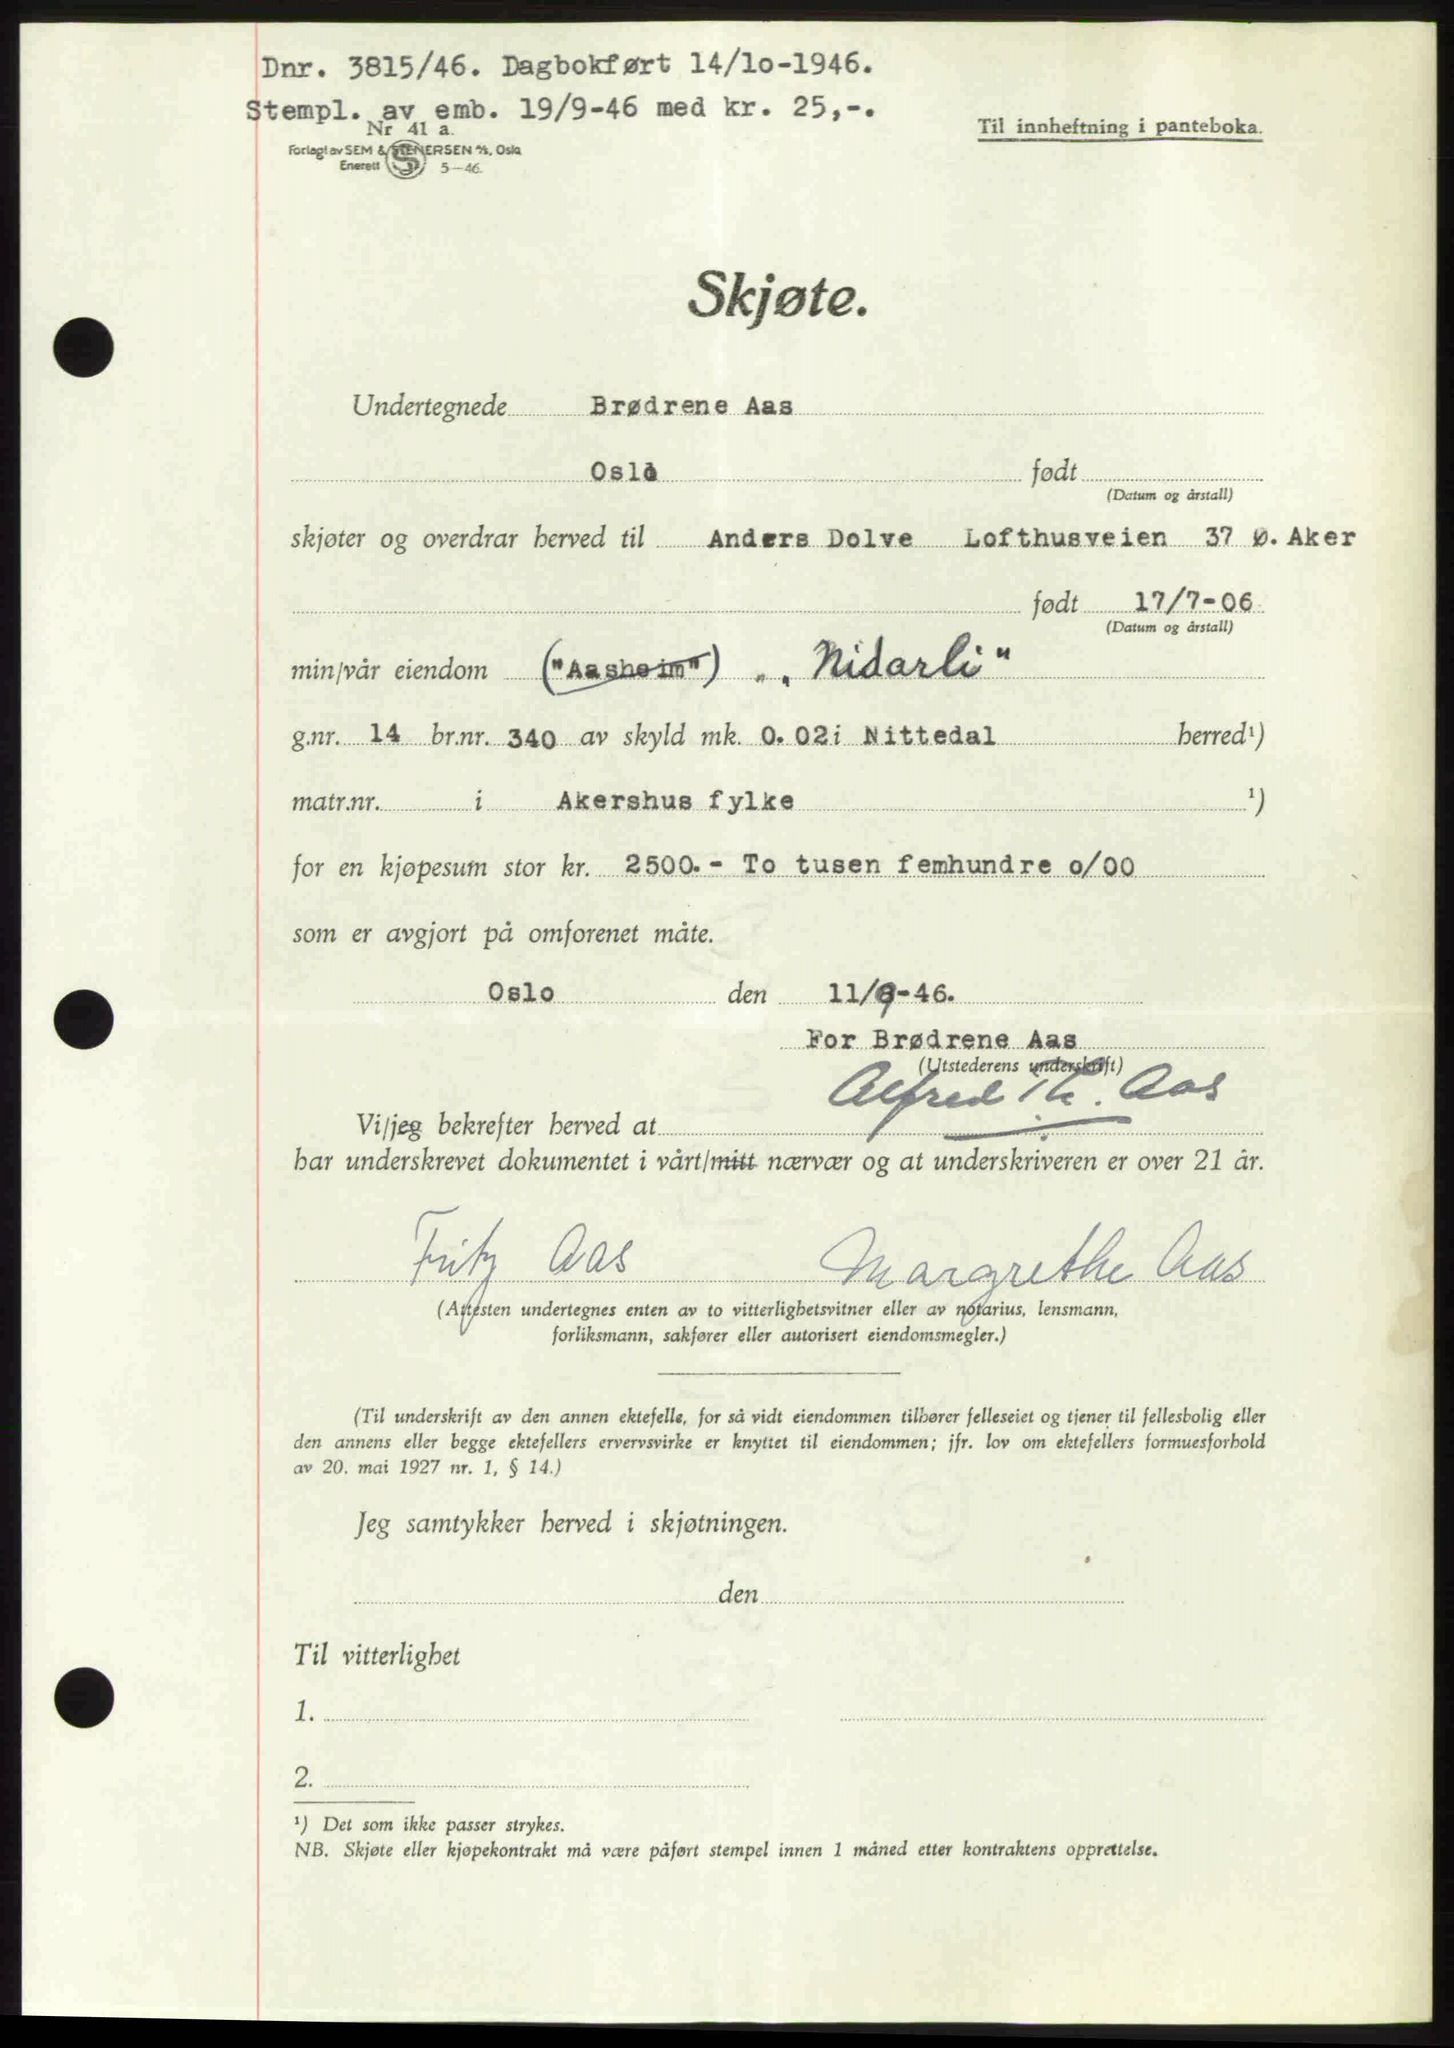 Dnr. 3815/46. Dagbokført 14/10-1946.
Stempl. av emb. 19/9-46 med kr. 25,-.
Nr 41 a.
Forlagt av SEM & STENERSEN A/S, Oslo
Enerett 5-46.
Til innheftning i panteboka.
Skjøte.
Undertegnede Brødrene Aas
Oslo født
(Datum og årstall)
skjøter og overdrar herved til Anders Dolve Lofthusveien 37 Ø. Aker
født 17/7-06
(Datum og årstall)
min/vår eiendom ("Aasheim") „ Nidarli"
g.nr. 14 br.nr. 340 av skyld mk. 0.02 i Nittedal herred¹)
matr.nr. i Akershus fylke ¹)
for en kjøpesum stor kr. 2500.- To tusen femhundre o/00
som er avgjort på omforenet måte.
Oslo den 11/9-46.
For Brødrene Aas
(Utstederens underskrift)
Alfred Th. Aas
Vi/jeg bekrefter herved at
har underskrevet dokumentet i vårt/mitt nærvær og at underskriveren er over 21 år.
Fritz Aas Margrethe Aas
(Attesten undertegnes enten av to vitterlighetsvitner eller av notarius, lensmann,
forliksmann, sakfører eller autorisert eiendomsmegler.)
(Til underskrift av den annen ektefelle, for så vidt eiendommen tilhører felleseiet og tjener til fellesbolig eller
den annens eller begge ektefellers ervervsvirke er knyttet til eiendommen; jfr. lov om ektefellers formuesforhold
av 20. mai 1927 nr. 1, § 14.)
Jeg samtykker herved i skjøtningen.
den
Til vitterlighet
1.
2.
¹) Det som ikke passer strykes.
NB. Skjøte eller kjøpekontrakt må være påført stempel innen 1 måned etter kontraktens opprettelse.